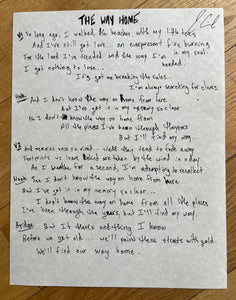 THE WAY HOME
V1 So long ago, I walked the beaches with my little toes
And I've still got love.. an overpresent fire burning
For the land I've treaded and the way I'm in my soul.
I got nothing to lose... needed.
It's got me breaking the rules...
I'm always searching for clues.
Hook: And I don't know the way on home from here
But I've got it in my memory so clear
No I don't know the way on home from
All the places I've been through the years
But I'll find my way..
V2 And memories raise so vivid.. well they tend to fade away
Footprints we leave behind are taken by the wind in a day
As I weather for a second, I'm attempting to recollect
Hook See I don't know the way on home from here
But I've got it in my memory so clear...
I don't know the way on home from all the places
I've been through the years, but I'll find my way
Bridge: But if there's one thing I know
Before we get old... we'll paint these streets with gold
We'll find our way home..